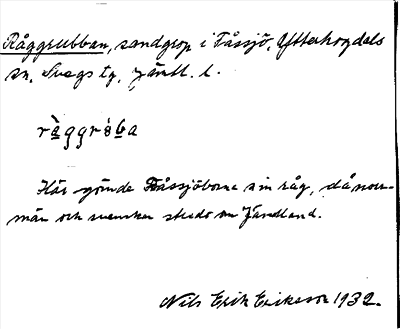 Råggrubban, sandgrop i Fåssjö, Ytterhogdals
sn, Svegs tg, Jämtl. l.
råggrùba
Här gömde Fåssjöborna sin råg, då norr-
män och svenskar stredo om Jämtland.
Nils Erik Eriksson 1932.